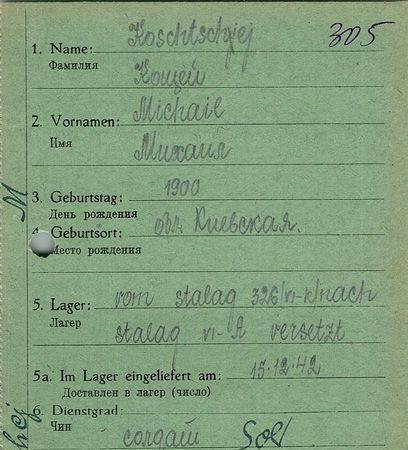 305
1. Name: Koschtschjej
Фамилия Кощей
2. Vornamen: Michail
Имя Михаил
3. Geburtstag: 1900
День рождения
4. Geburtsort: обл. Киевская.
Место рождения
5. Lager: vom stalag 326/VI-K/nach
Лагер stalag VI-A versetzt
5a. Im Lager eingeliefert am: 15.12.42
Доставлен в лагер (число)
6. Dienstgrad:
Чин солдат Sol